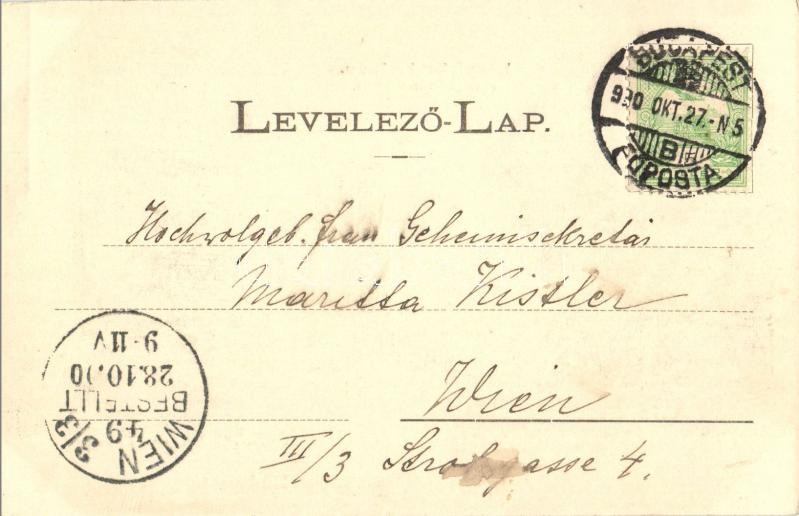 LEVELEZŐ-LAP.
BUDAPEST
930 OKT.27.-N5
B
FŐPOSTA
Hochwolgeb. frau Geheimsekretär
Maritta Kistler
Wien
III/3 gasse 4.
WIEN 3/3
49
BESTELLT
28.10.00
9-11V